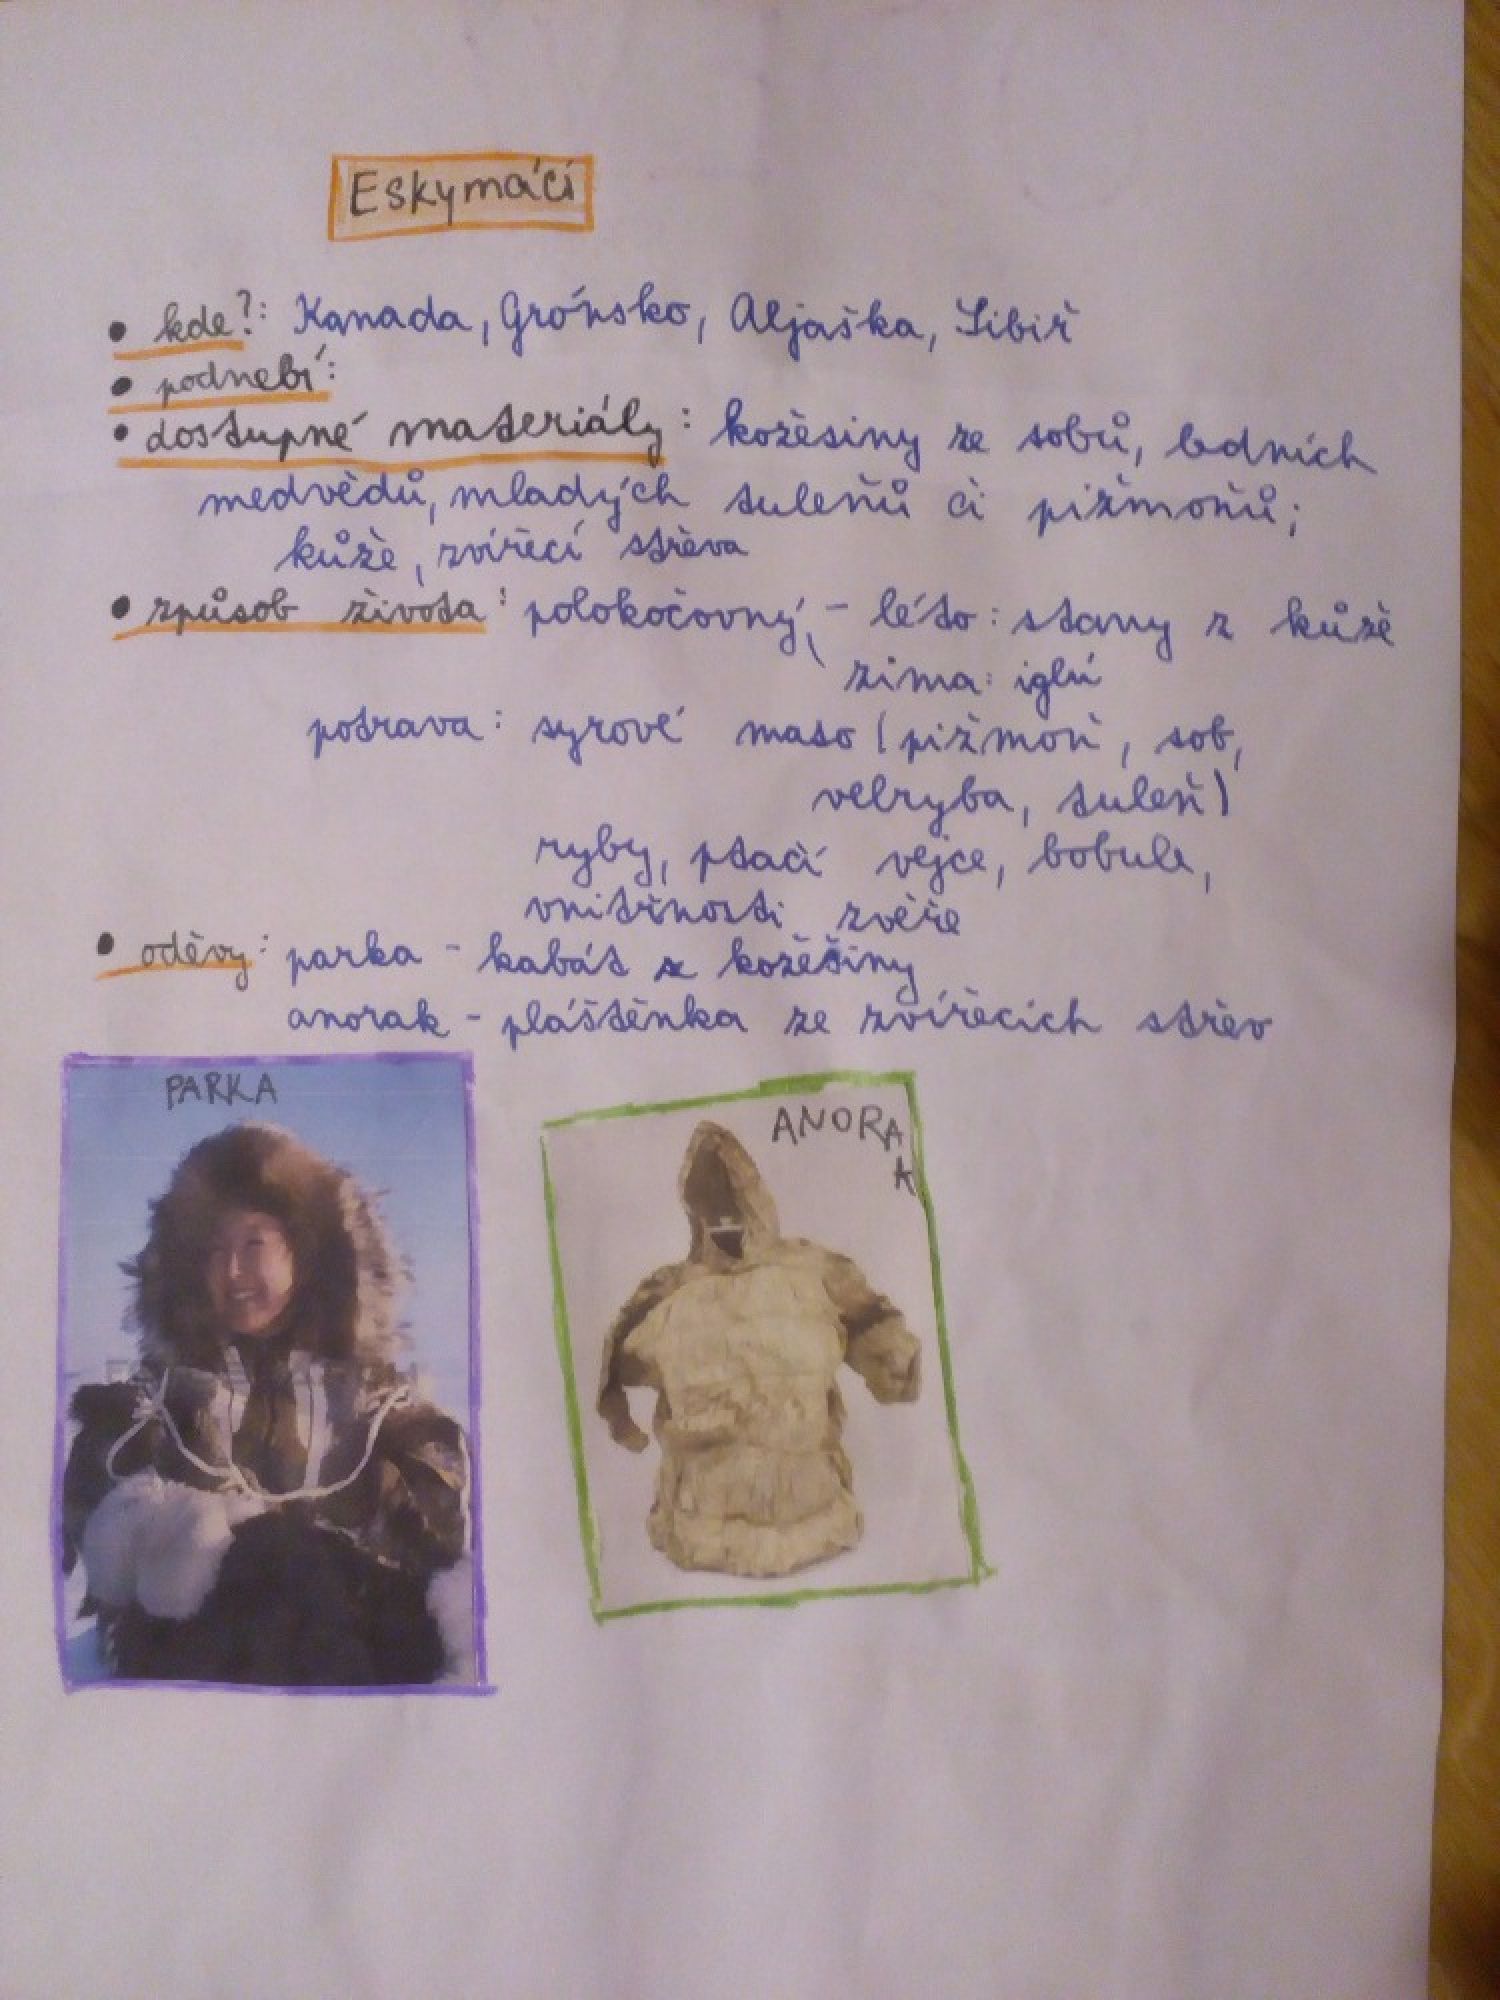 Eskymáci
• kde?: Kanada, Grónsko, Aljaška, Sibiř
• podnebí:
• dostupné materiály: kožešiny ze sobů, ledních
medvědů, mladých tuleňů či pižmoňů;
kůže, zvířecí střeva
• způsob života: polokočovný, - léto: stany z kůže
zima: iglú
potrava: syrové maso (pižmoň, sob,
velryba, tuleň)
ryby, ptačí vejce, bobule,
vnitřnosti zvěře
• oděvy: parka - kabát z kožešiny
anorak - pláštěnka ze zvířecích střev
PARKA
ANORAK